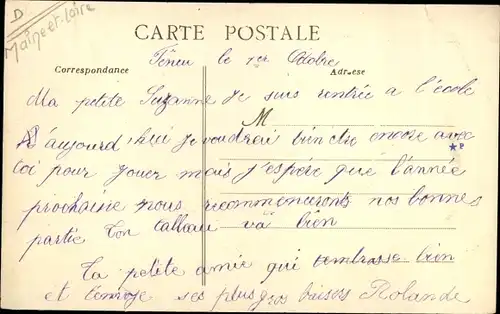 D
Maine et Loire
CARTE POSTALE
Fêneu le 1er Octobre
Correspondance
Adresse
Ma petite Suzanne Je suis rentrée a l'école
M
D'aujourd'hui je voudrai bien être encore avec
toi pour jouer mais j'espére que l'année
prochaine nous recommencerons nos bonnes
partie Ton tableau va bien
Ta petite amie qui t'embrasse bien
et t'envoie ses plus gros baisers Rolande